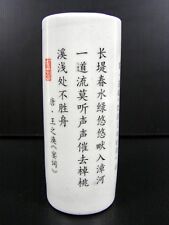 长堤春水绿悠悠畎入漳河
一道流莫听声声催去棹桃
溪浅处不胜舟
唐·王之涣《宴词》